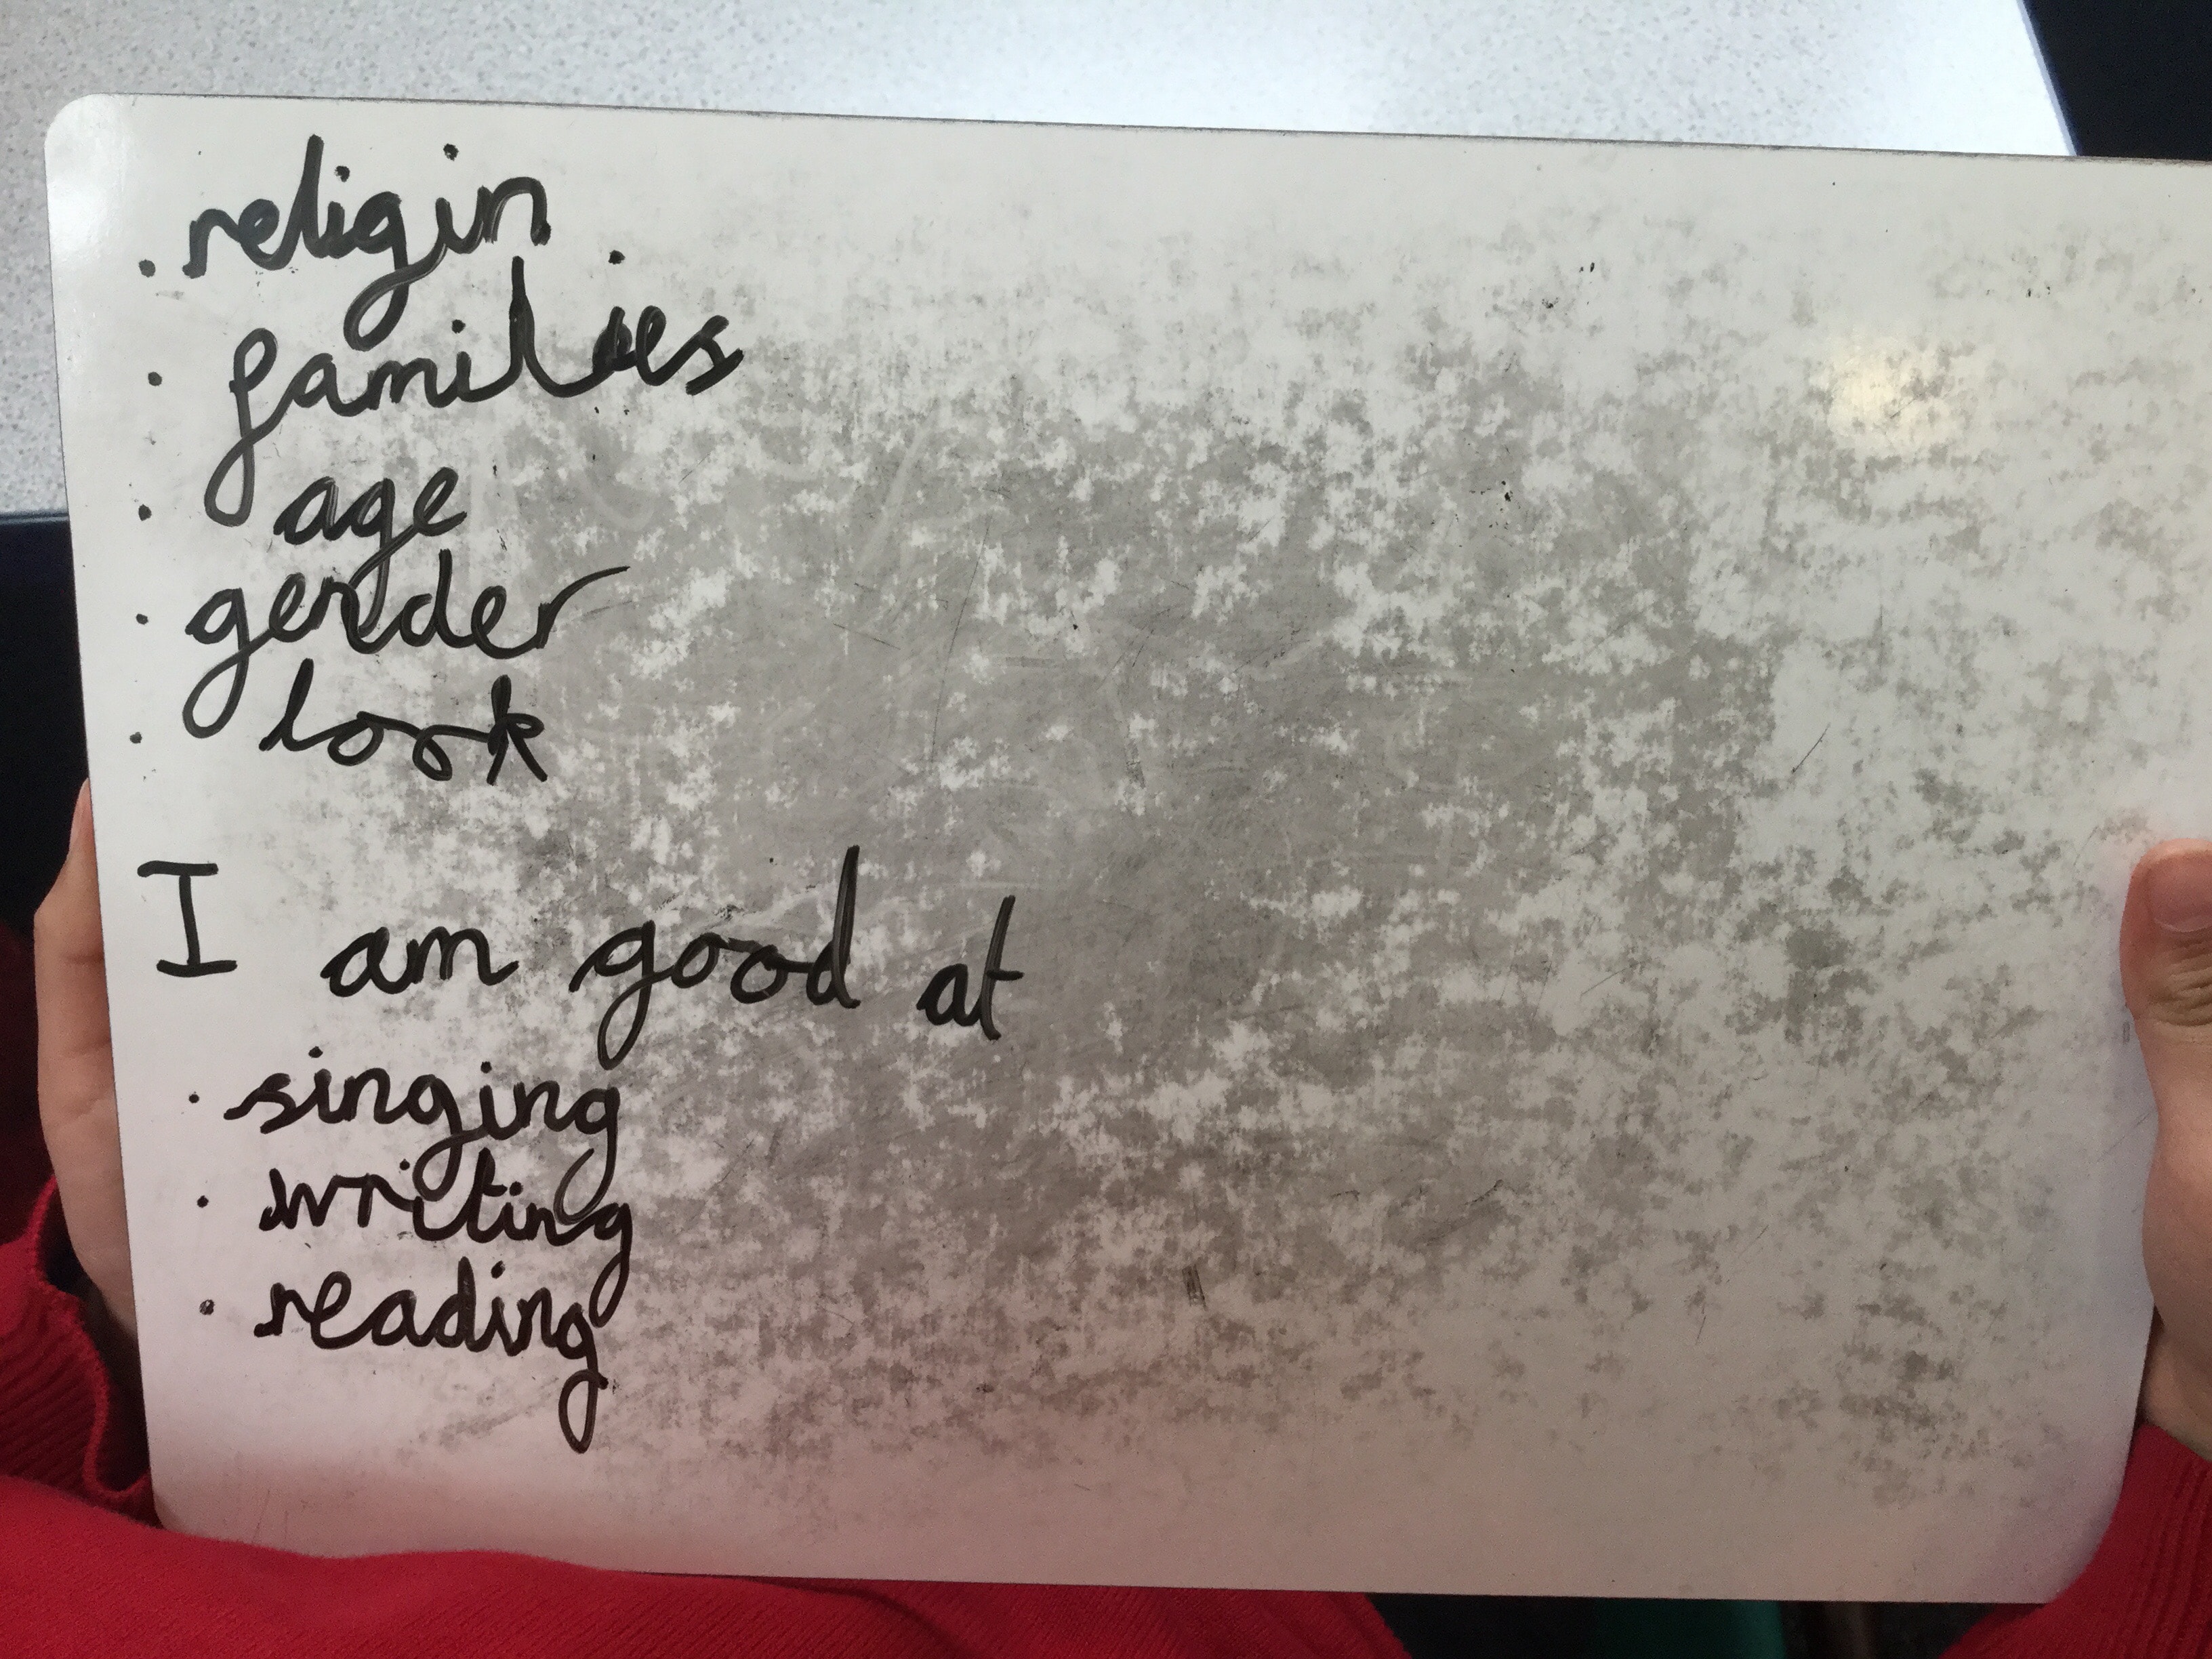 . religin
. families
. age
. gender
. look
I am good at
. singing
. writing
. reading